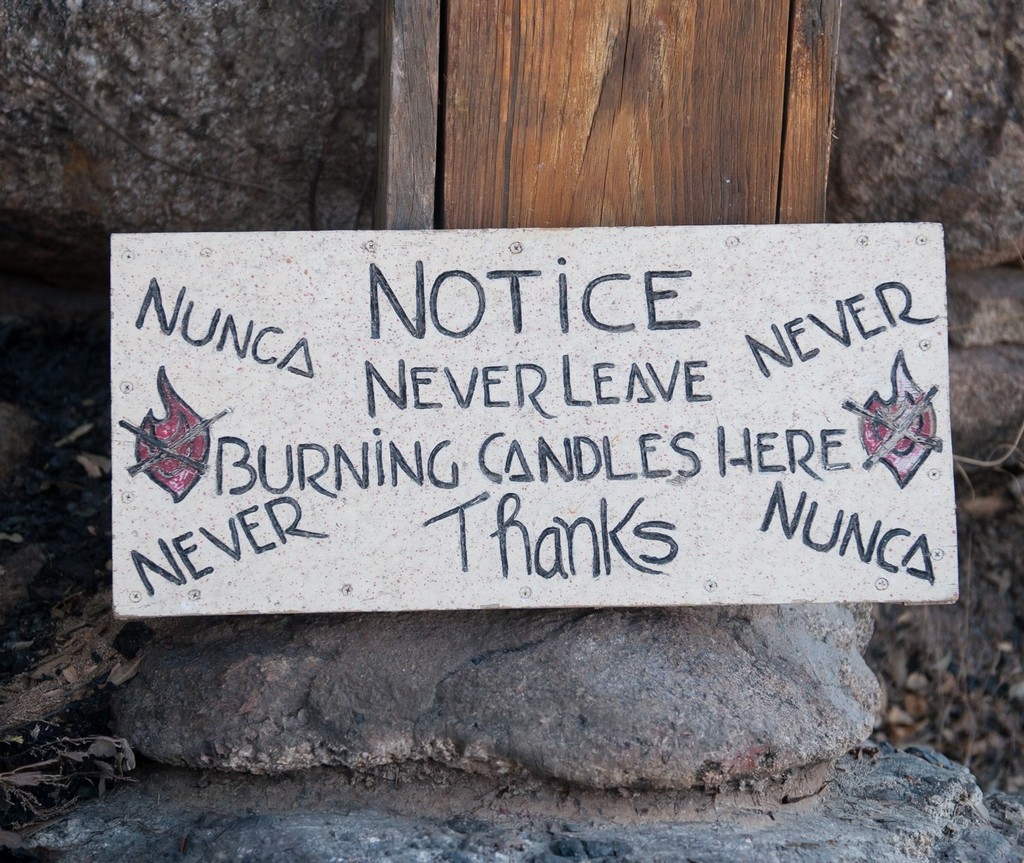 NOTiCE
NUNCA
NEVER
NEVER LEAVE
BURNiNG CANDLES HERE
NEVER
Thanks
NUNCA